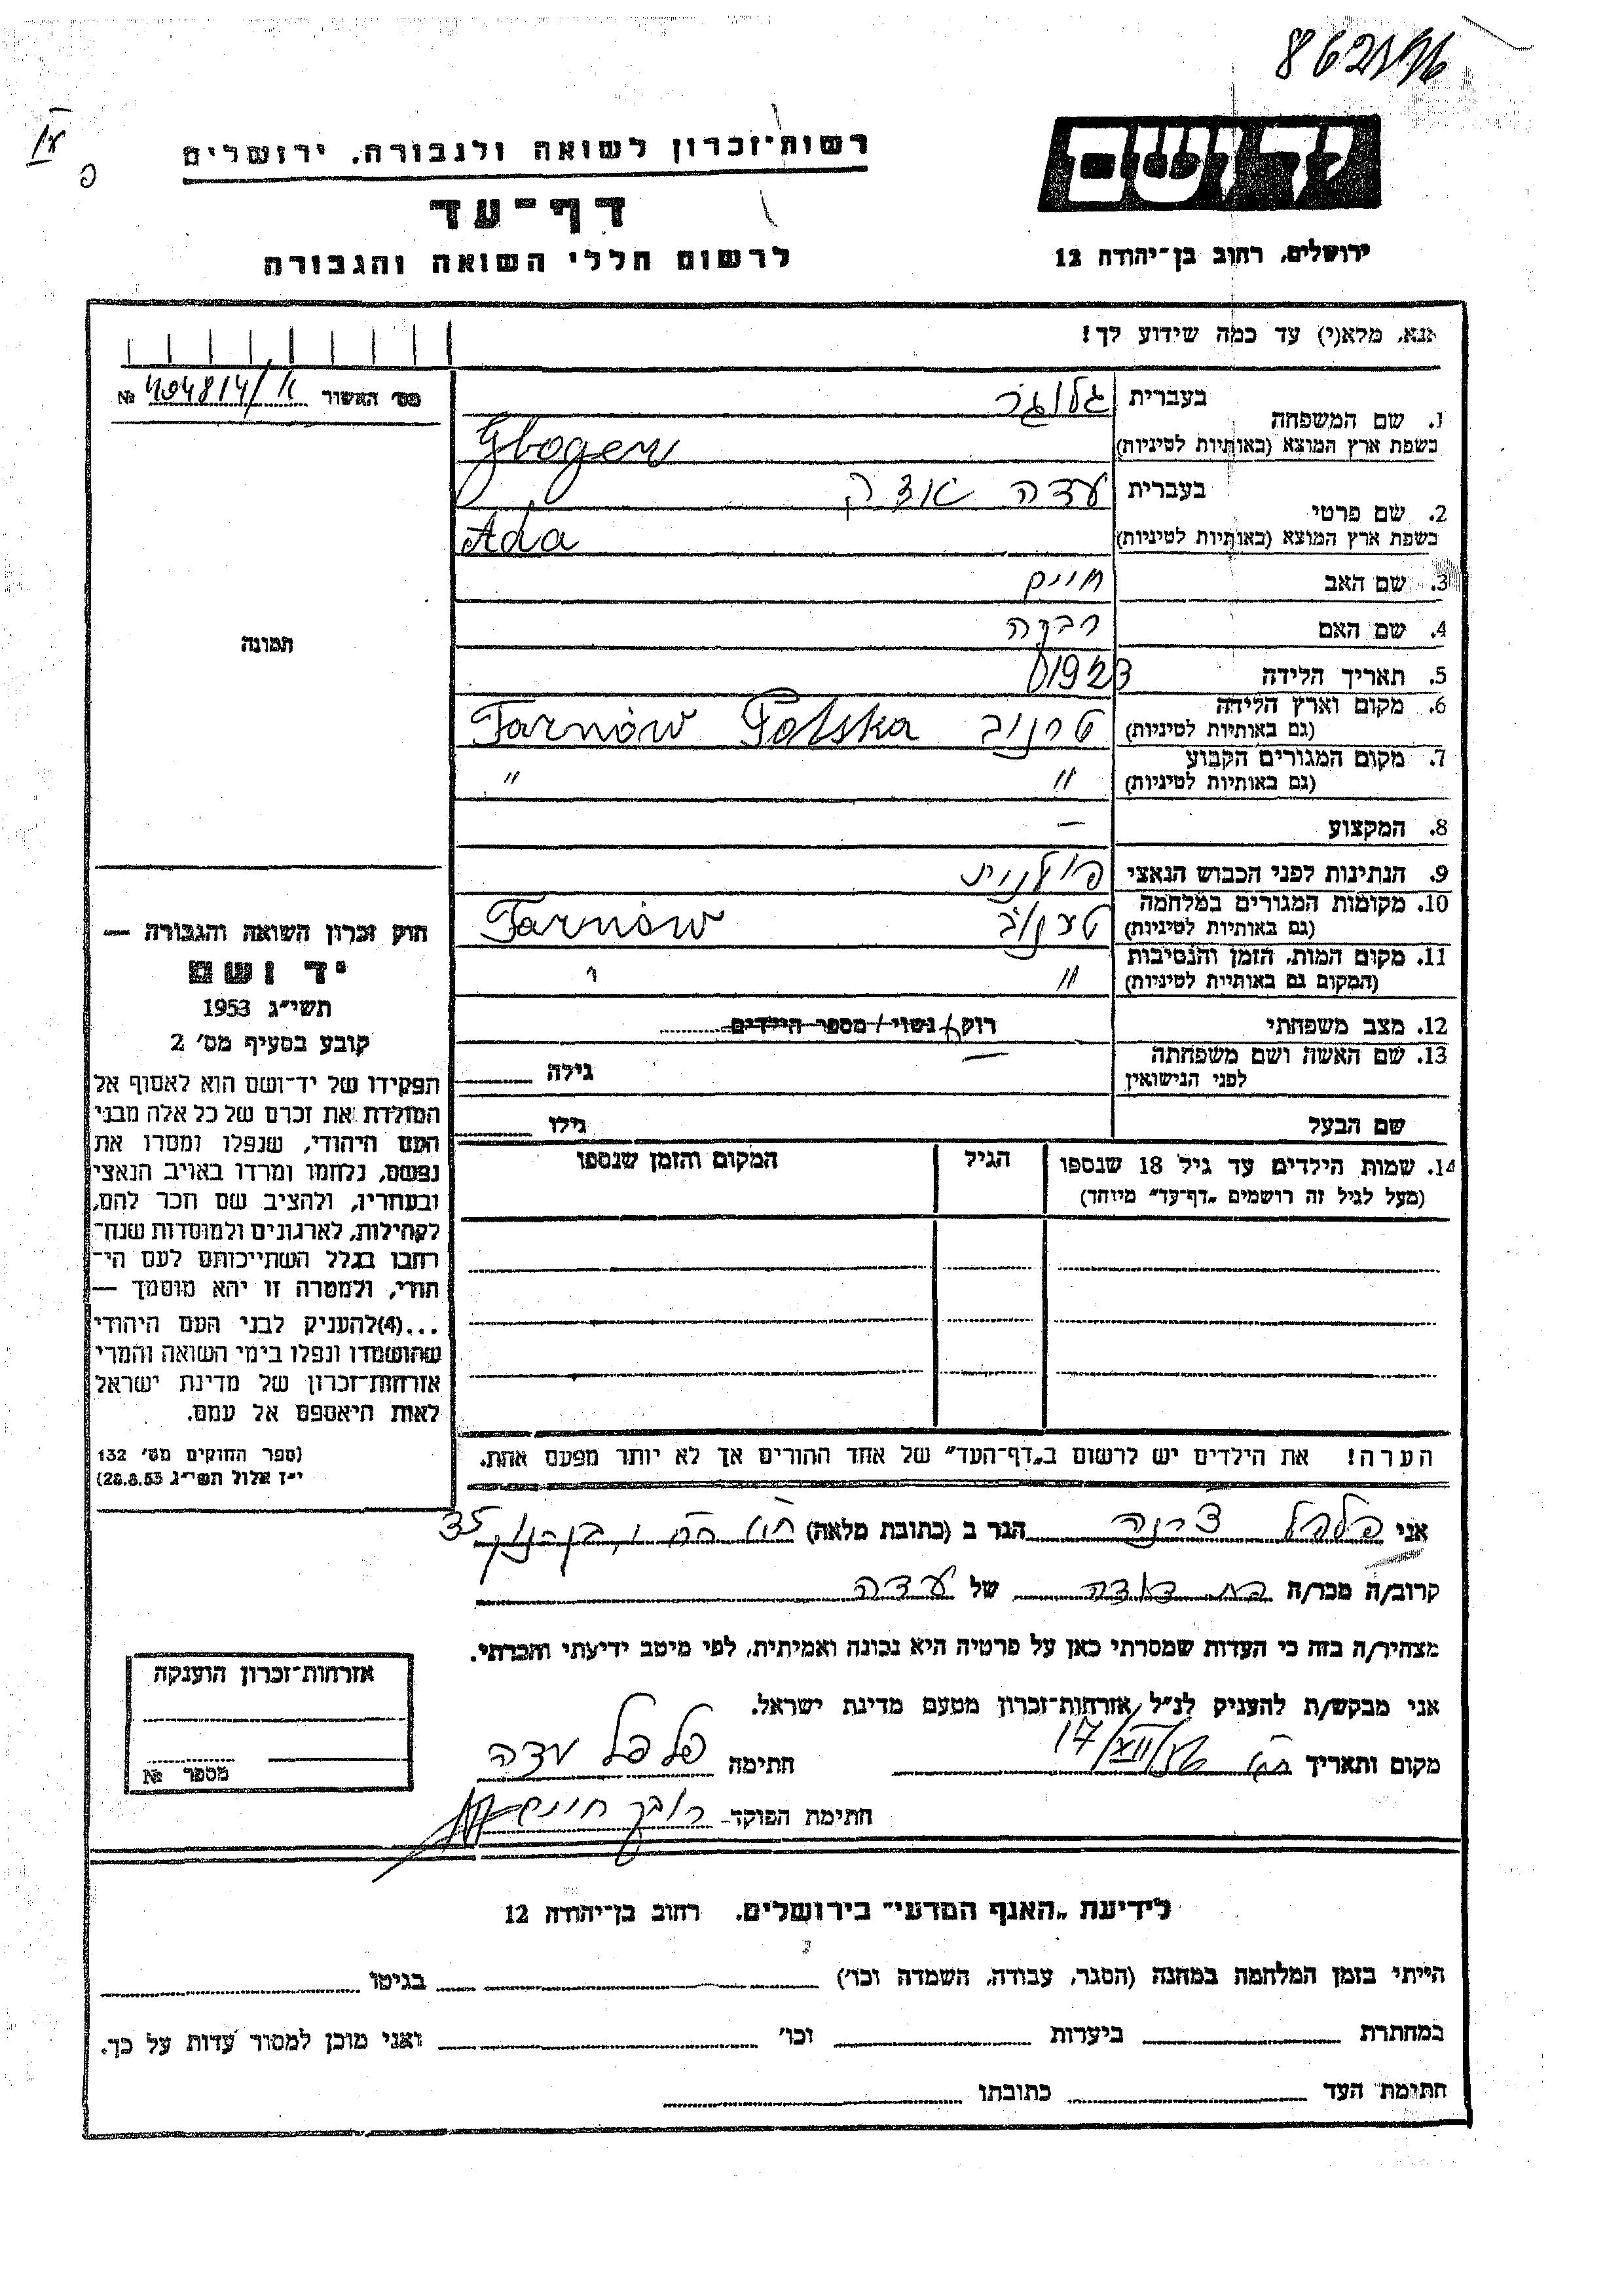 862196
רשות־זכרון לשואה ולגבורה, ירושלים
דף־עד
לרשום חללי השואה והגבורה
יד ושם
ירושלים, רחוב בן־יהודה 12
אנא, מלא(י) עד כמה שידוע לך!
מס׳ האשור № 404814/א
1. שם המשפחה בעברית גלוגר
בשפת ארץ המוצא (באותיות לטיניות) Gloger
2. שם פרטי בעברית עדה
בשפת ארץ המוצא (באותיות לטיניות) Ada
3. שם האב חיים
4. שם האם רבקה
5. תאריך הלידה 1923
6. מקום וארץ הלידה
(גם באותיות לטיניות) טרנוב Tarnów Polska
7. מקום המגורים הקבוע
(גם באותיות לטיניות) " "
8. המקצוע —
9. הנתינות לפני הכבוש הנאצי פולנית
10. מקומות המגורים במלחמה
(גם באותיות לטיניות) טרנוב Tarnów
11. מקום המות, הזמן והנסיבות
(המקום גם באותיות לטיניות) "
12. מצב משפחתי רוק/ה נשוי/ מספר הילדים
13. שם האשה ושם משפחתה
לפני הנישואין — גילה
שם הבעל גילו
14. שמות הילדים עד גיל 18 שנספו הגיל המקום והזמן שנספו
(מעל לגיל זה רושמים „דף־עד״ מיוחד)
הערה! את הילדים יש לרשום ב„דף־העד״ של אחד ההורים אך לא יותר מפעם אחת.
תמונה
חוק זכרון השואה והגבורה —
יד ושם
תשי״ג 1953
קובע בסעיף מס׳ 2
תפקידו של יד־ושם הוא לאסוף אל
המולדת את זכרם של כל אלה מבני
העם היהודי, שנפלו ומסרו את
נפשם, נלחמו ומרדו באויב הנאצי
ובעוזריו, ולהציב שם וזכר להם,
לקהילות, לארגונים ולמוסדות שנח־
רחבו בגלל השתייכותם לעם הי־
הודי, ולמטרה זו יהא מוסמך —
...(4)להעניק לבני העם היהודי
שהושמדו ונפלו בימי השואה והמרי
אזרחות־זכרון של מדינת ישראל
לאות היאספם אל עמם.
(ספר החוקים מס׳ 132
י״ז אלול תשי״ג 28.8.53)
אני פלפל הגר ב (כתובת מלאה) 35
קרוב/ה מכר/ה בת דודה של עדה
מצהיר/ה בזה כי העדות שמסרתי כאן על פרטיה היא נכונה ואמיתית, לפי מיטב ידיעתי והכרתי.
אני מבקש/ת להעניק לנ״ל אזרחות־זכרון מטעם מדינת ישראל.
מקום ותאריך 17/XII חתימה פלפל עדה
חתימת הפוקד
אזרחות־זכרון הוענקה
מספר №
לידיעת „האגף המדעי״ בירושלים, רחוב בן־יהודה 12
הייתי בזמן המלחמה במחנה (הסגר, עבודה, השמדה וכו׳) בגיטו
במחתרת ביערות וכו׳ ואני מוכן למסור עדות על כך.
חתימת העד כתובתו